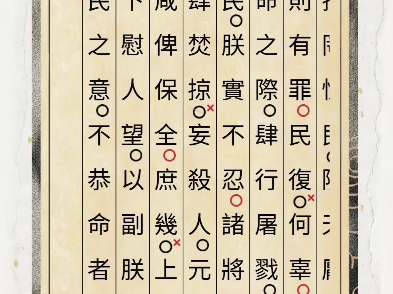 則有罪民復何辜
命之際肆行屠戮
民朕實不忍諸將
肆焚掠妄殺人元
咸俾保全庶幾上
下慰人望以副朕
民之意不恭命者